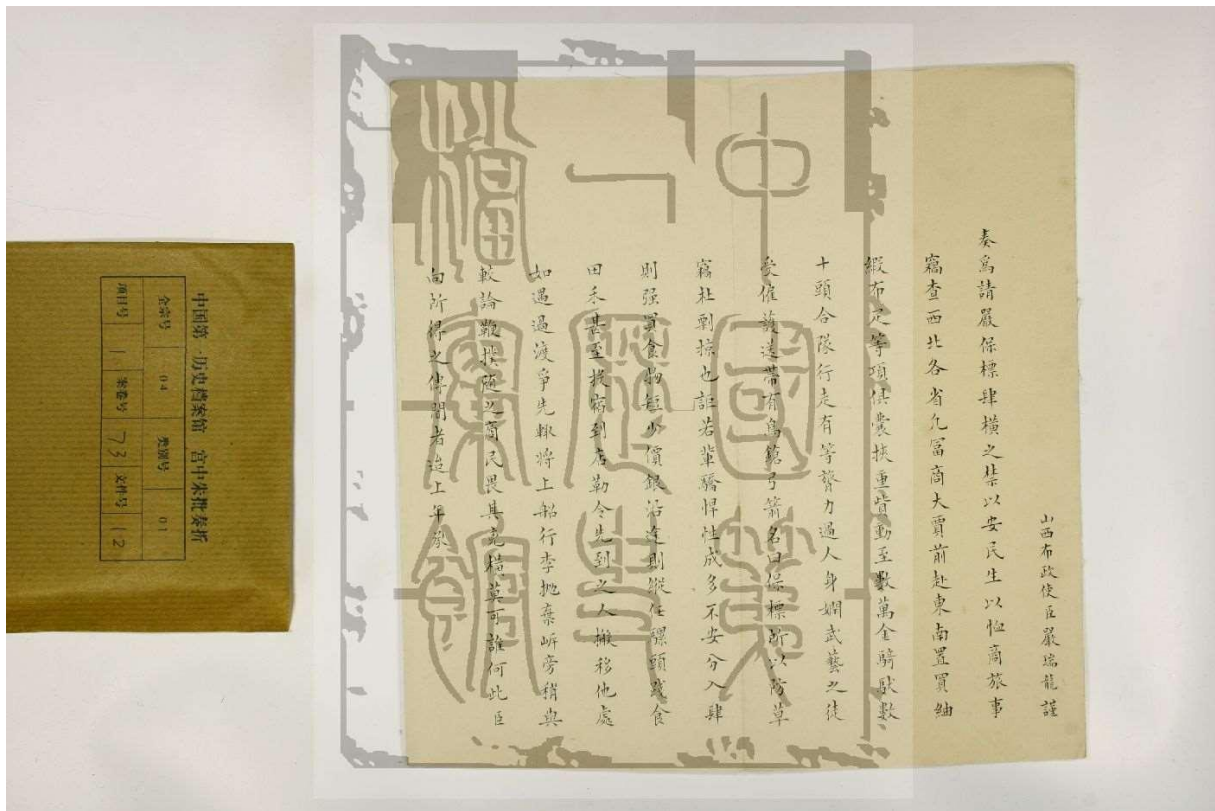 山西布政使臣嚴瑞龍謹
奏爲請嚴保標肆橫之禁以安民生以恤商旅事
竊查西北各省凡富商大賈前赴東南置買紬
緞布疋等項俱囊挾重貲動至數萬金騎馱數
十頭合隊行走有等膂力過人身嫻武藝之徒
受僱護送帶有鳥鎗弓箭名曰保標所以防草
竊杜剽掠也詎若輩驕悍性成多不安分入肆
則强買食物短少價銀沿途則縱任騾頭踐食
田禾甚至投宿到店勒令先到之人搬移他處
如遇過渡爭先輒將上船行李抛棄岸旁稍與
較論鞭撲隨之商民畏其兇橫莫可誰何此臣
向所得之傳聞者迨上年冬
中国第一历史档案馆 宫中朱批奏折
全宗号 04 类别号 01
项目号 1 案卷号 73 文件号 12
中國第一歷史檔案館